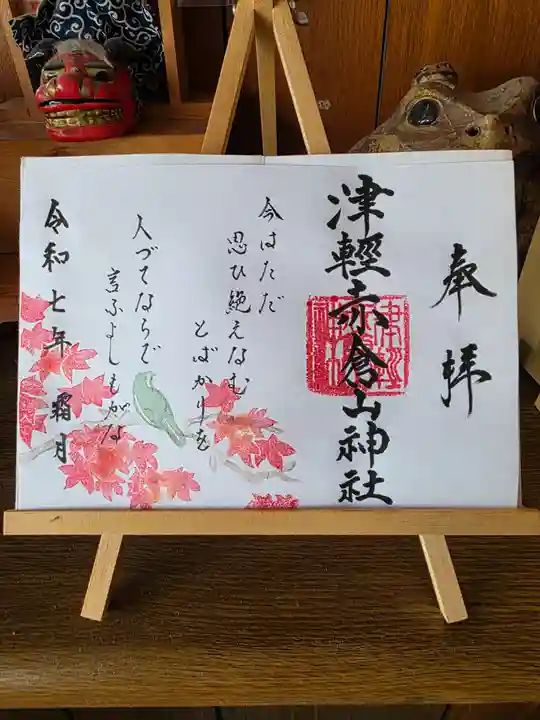 奉拝
津輕赤倉山神社
今はただ
思ひ絶えなむ
とばかりを
人づてならで
言ふよしもがな
令和七年 霜月